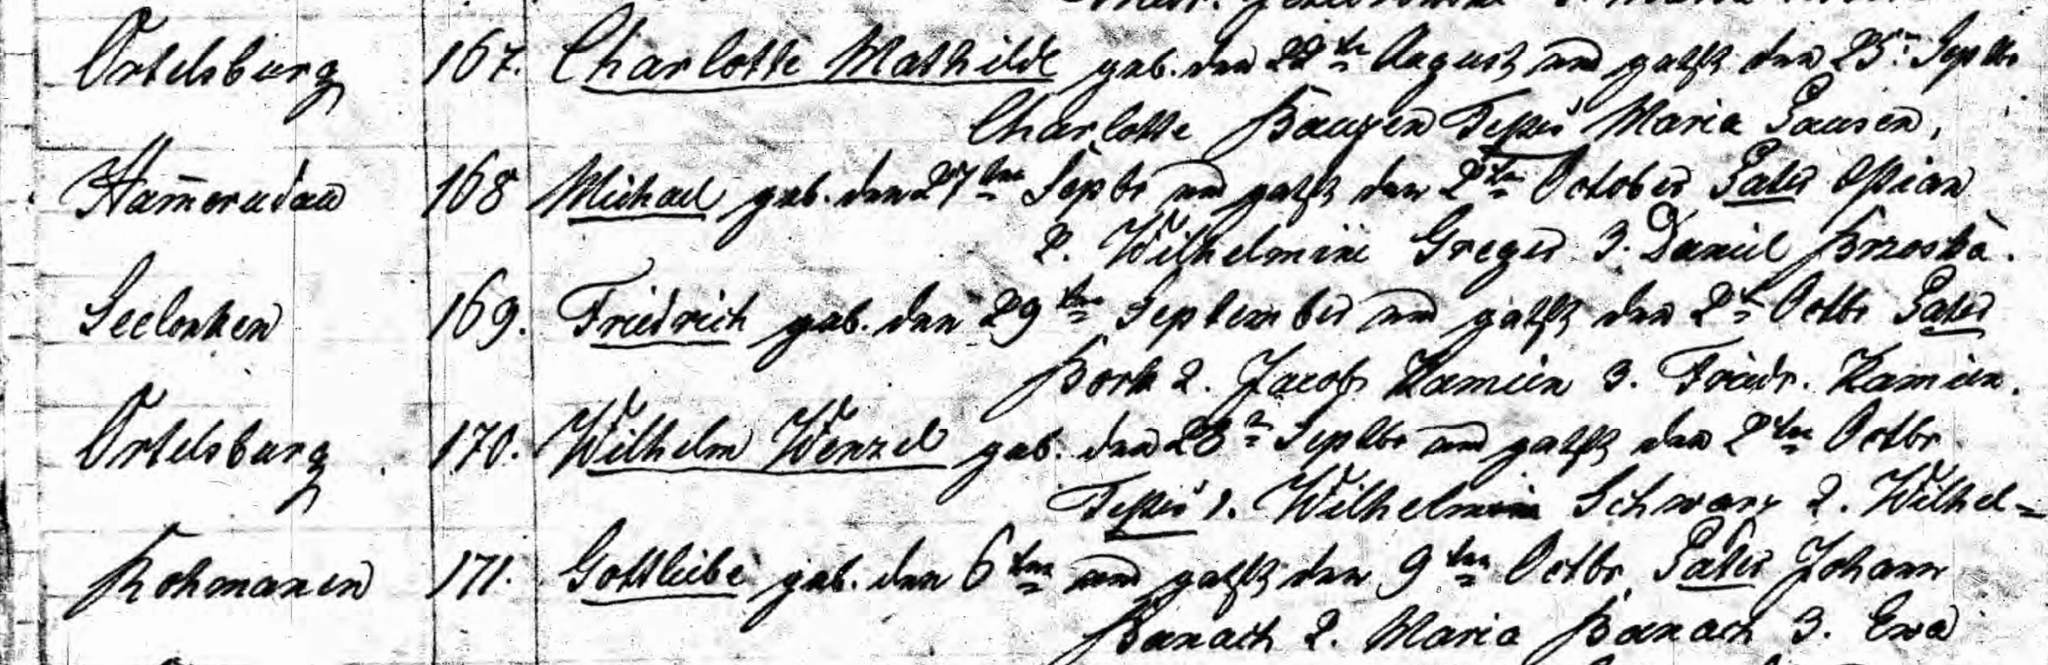 Ortelsburg 167. Charlotte Mathilde geb. den 22ten August und getft den 25ten Septbr
Charlotte Testes Maria
Hamerudau 168 Michael geb. den 27ten Septbr und getft den 2ten October Pater
2. Wilhelmine Greger 3. Daniel Brzoska.
Seelonken 169. Friedrich geb. den 29ten September und getft den 2ten Octbr Pater
Bork 2. Jacob Kamien 3. Friedr. Kamien.
Ortelsburg 170. Wilhelm Wenzel geb. den Septbr und getft den 2ten Octbr
Testes 1. Wilhelmine Schwarz 2. Wilhel=
Kohmanen 171. Gottliebe geb. den 6ten und getft den 9ten Octbr Pater Johann
Banach 2. Maria Banach 3. Ewa